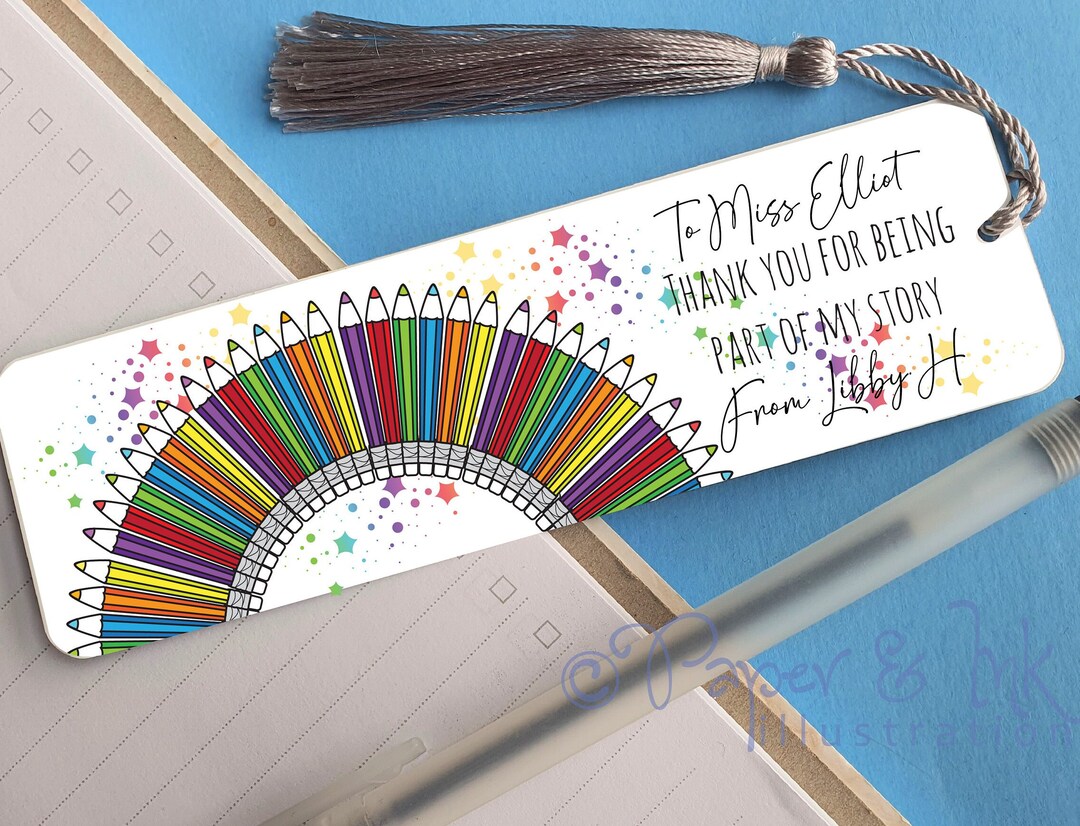 To Miss Elliot
THANK YOU FOR BEING
PART OF MY STORY
From Libby H
© Paper & Ink
Illustration